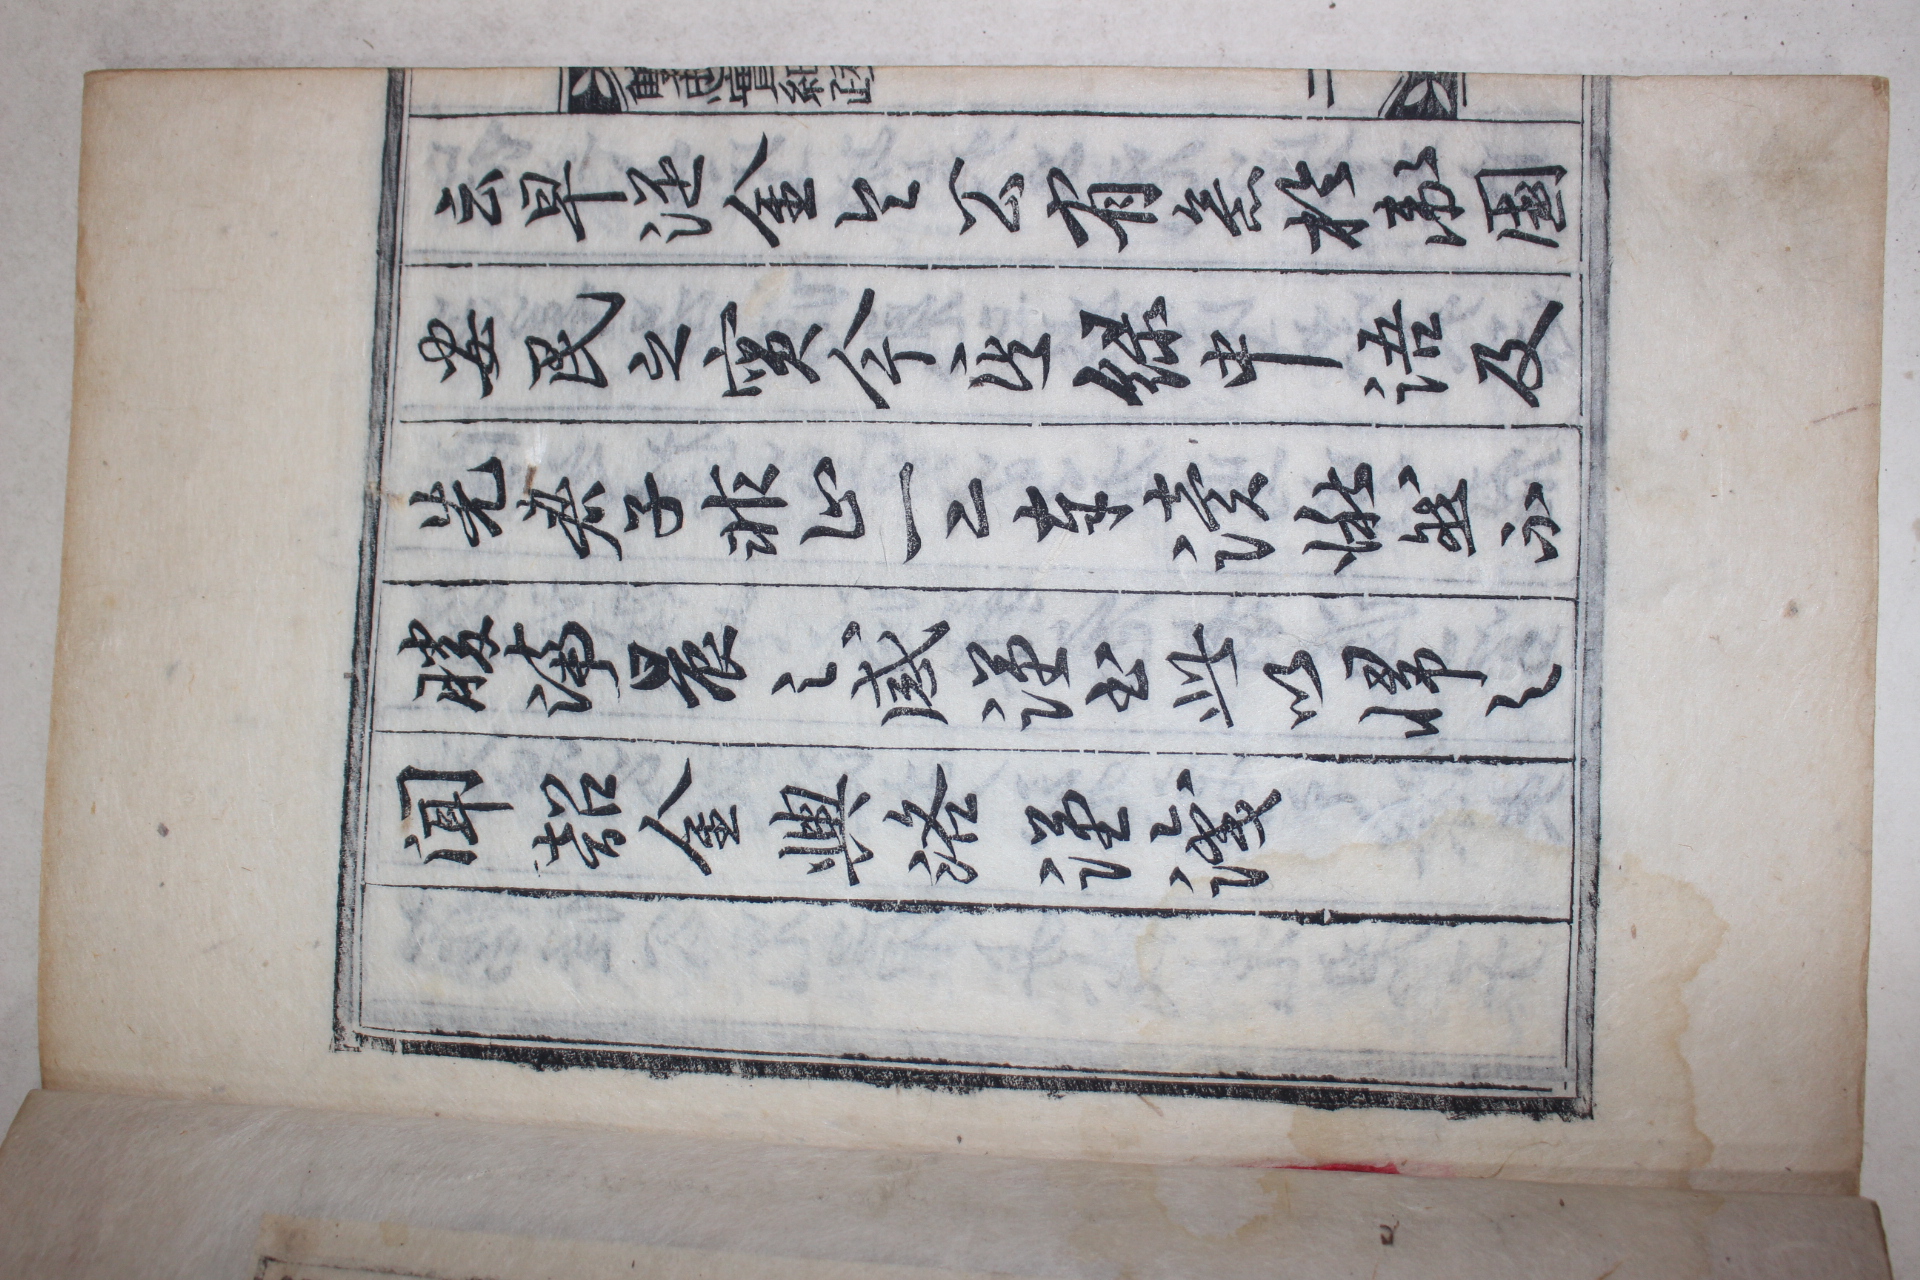 雙忠實紀跋
二
云早從金令公有於國
安民之實今錄中語及
先君子非止一二奉讀愀然不
勝晨之感謹書此以歸之
聞韶金興洛謹識